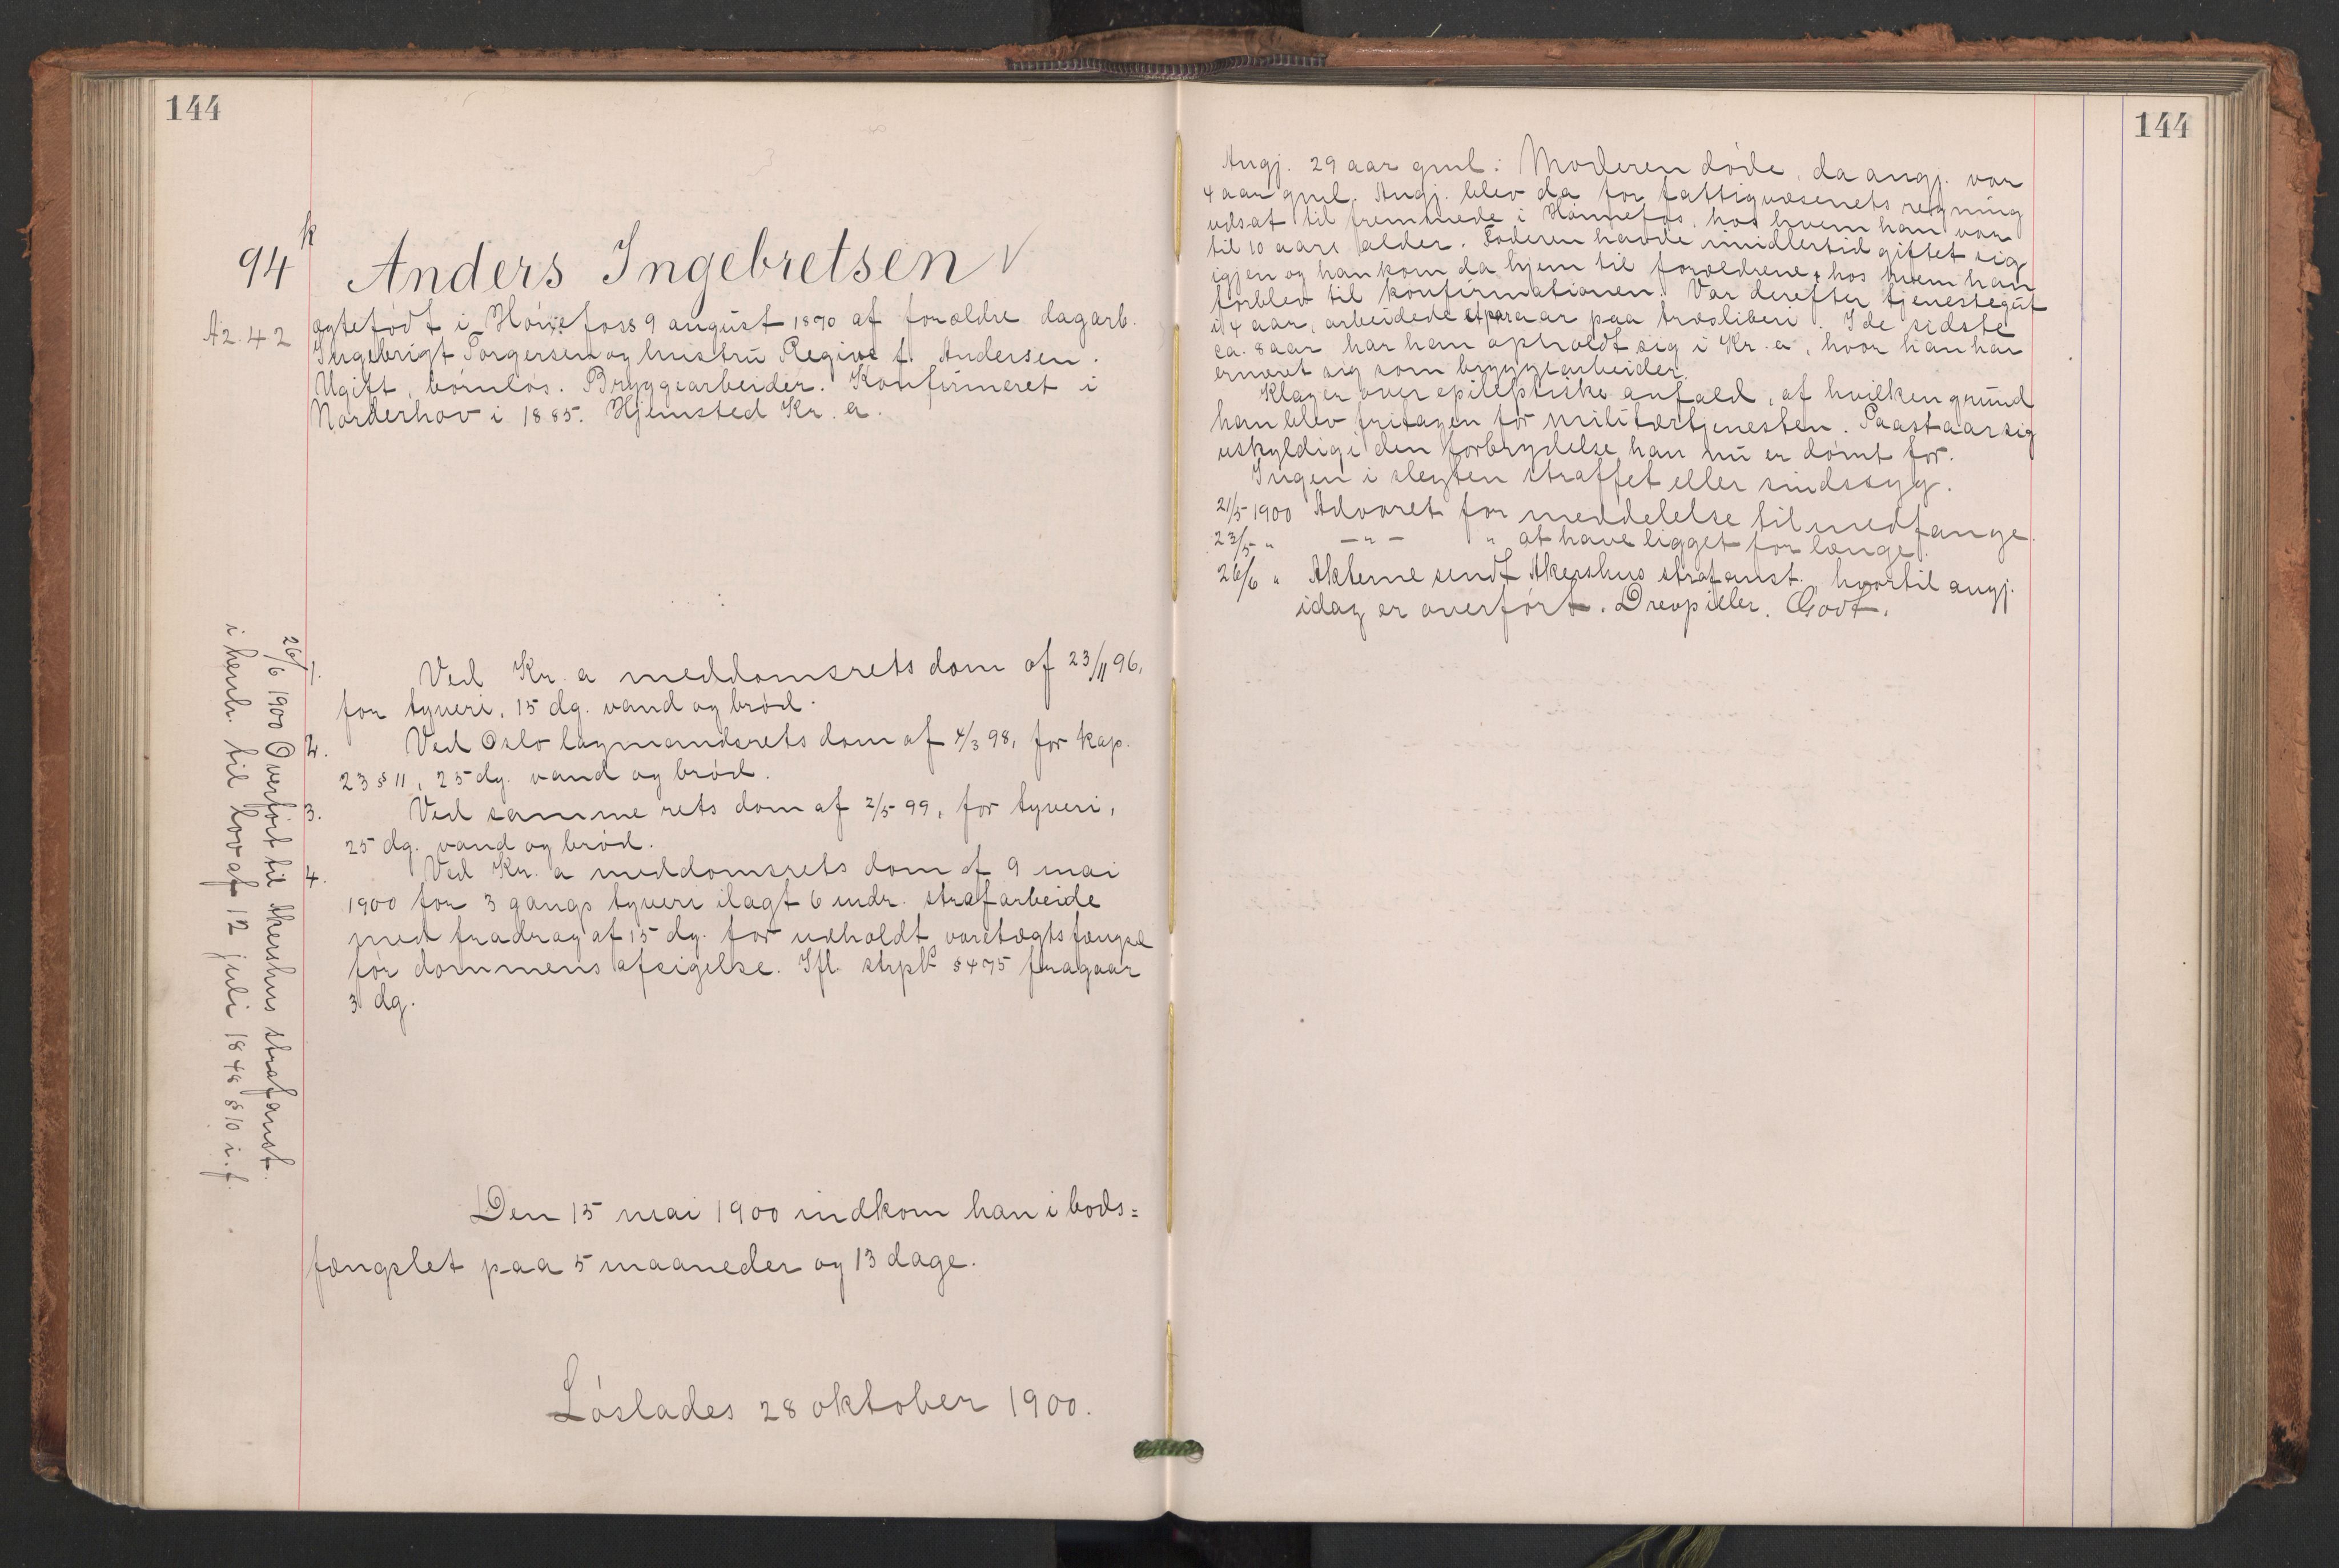 144
94 k Anders Ingebretsen ✓
A2.42 ægtefødt i Hønefoss 9 august 1870 af forældre dagarb.
Ingebrigt Torgersen og hustru Regine f. Andersen.
Ugift, børnløs. Bryggearbeider. Konfirmeret i
Norderhov i 1885. Hjemsted Kr. a.
1. Ved Kr. a meddomsrets dom af 23/11 96,
for tyveri, 15 dg. vand og brød.
2. Ved Oslo lagmandsrets dom af 4/3 98, for kap.
23 § 11, 25 dg. vand og brød.
3. Ved samme rets dom af 2/5 99, for tyveri,
25 dg. vand og brød.
4. Ved Kr. a meddomsrets dom af 9 mai
1900 for 3 gangs tyveri ilagt 6 mdr. strafarbeide
med fradrag af 15 dg. for udholdt varetægtsfængsel
før dommens afsigelse. Ifl. strpl. § 475 fragaar
3 dg.
26/6 1900 Overført til Akershus strafanst.
i henh. til lov af 12 juli 1848 § 10 i. f.
Den 15 mai 1900 indkom han i bods=
fængslet paa 5 maaneder og 13 dage.
Løslades 28 oktober 1900.
144
Angj. 29 aar gml. Moderen døde, da angj. var
4 aar gml. Angj. blev da for fattigvæsenets regning
udsat til fremmede i Hønnefos, hos hvem han var
til 10 aars alder. Faderen havde imidlertid giftet sig
igjen og han kom da hjem til forældrene, hos hvem han
forblev til konfirmationen. Var derefter tjenestegut
i 4 aar, arbeidede et par aar paa træsliberi. I de sidste
ca. 8 aar har han opholdt sig i Kr. a, hvor han har
ernæret sig som bryggearbeider.
Klager over epileptiske anfald, af hvilken grund
han blev fritagen for militærtjenesten. Paastaar sig
uskyldig i den forbrydelse han nu er dømt for.
Ingen i slegten straffet eller sindssyg.
21/5 1900 Advaret for meddelelse til medfange.
23/5 " —"— " at have ligget for længe.
26/6 " Akterne sendt Akershus strafanst. hvortil angj.
idag er overført. Drevpiller. Godt.